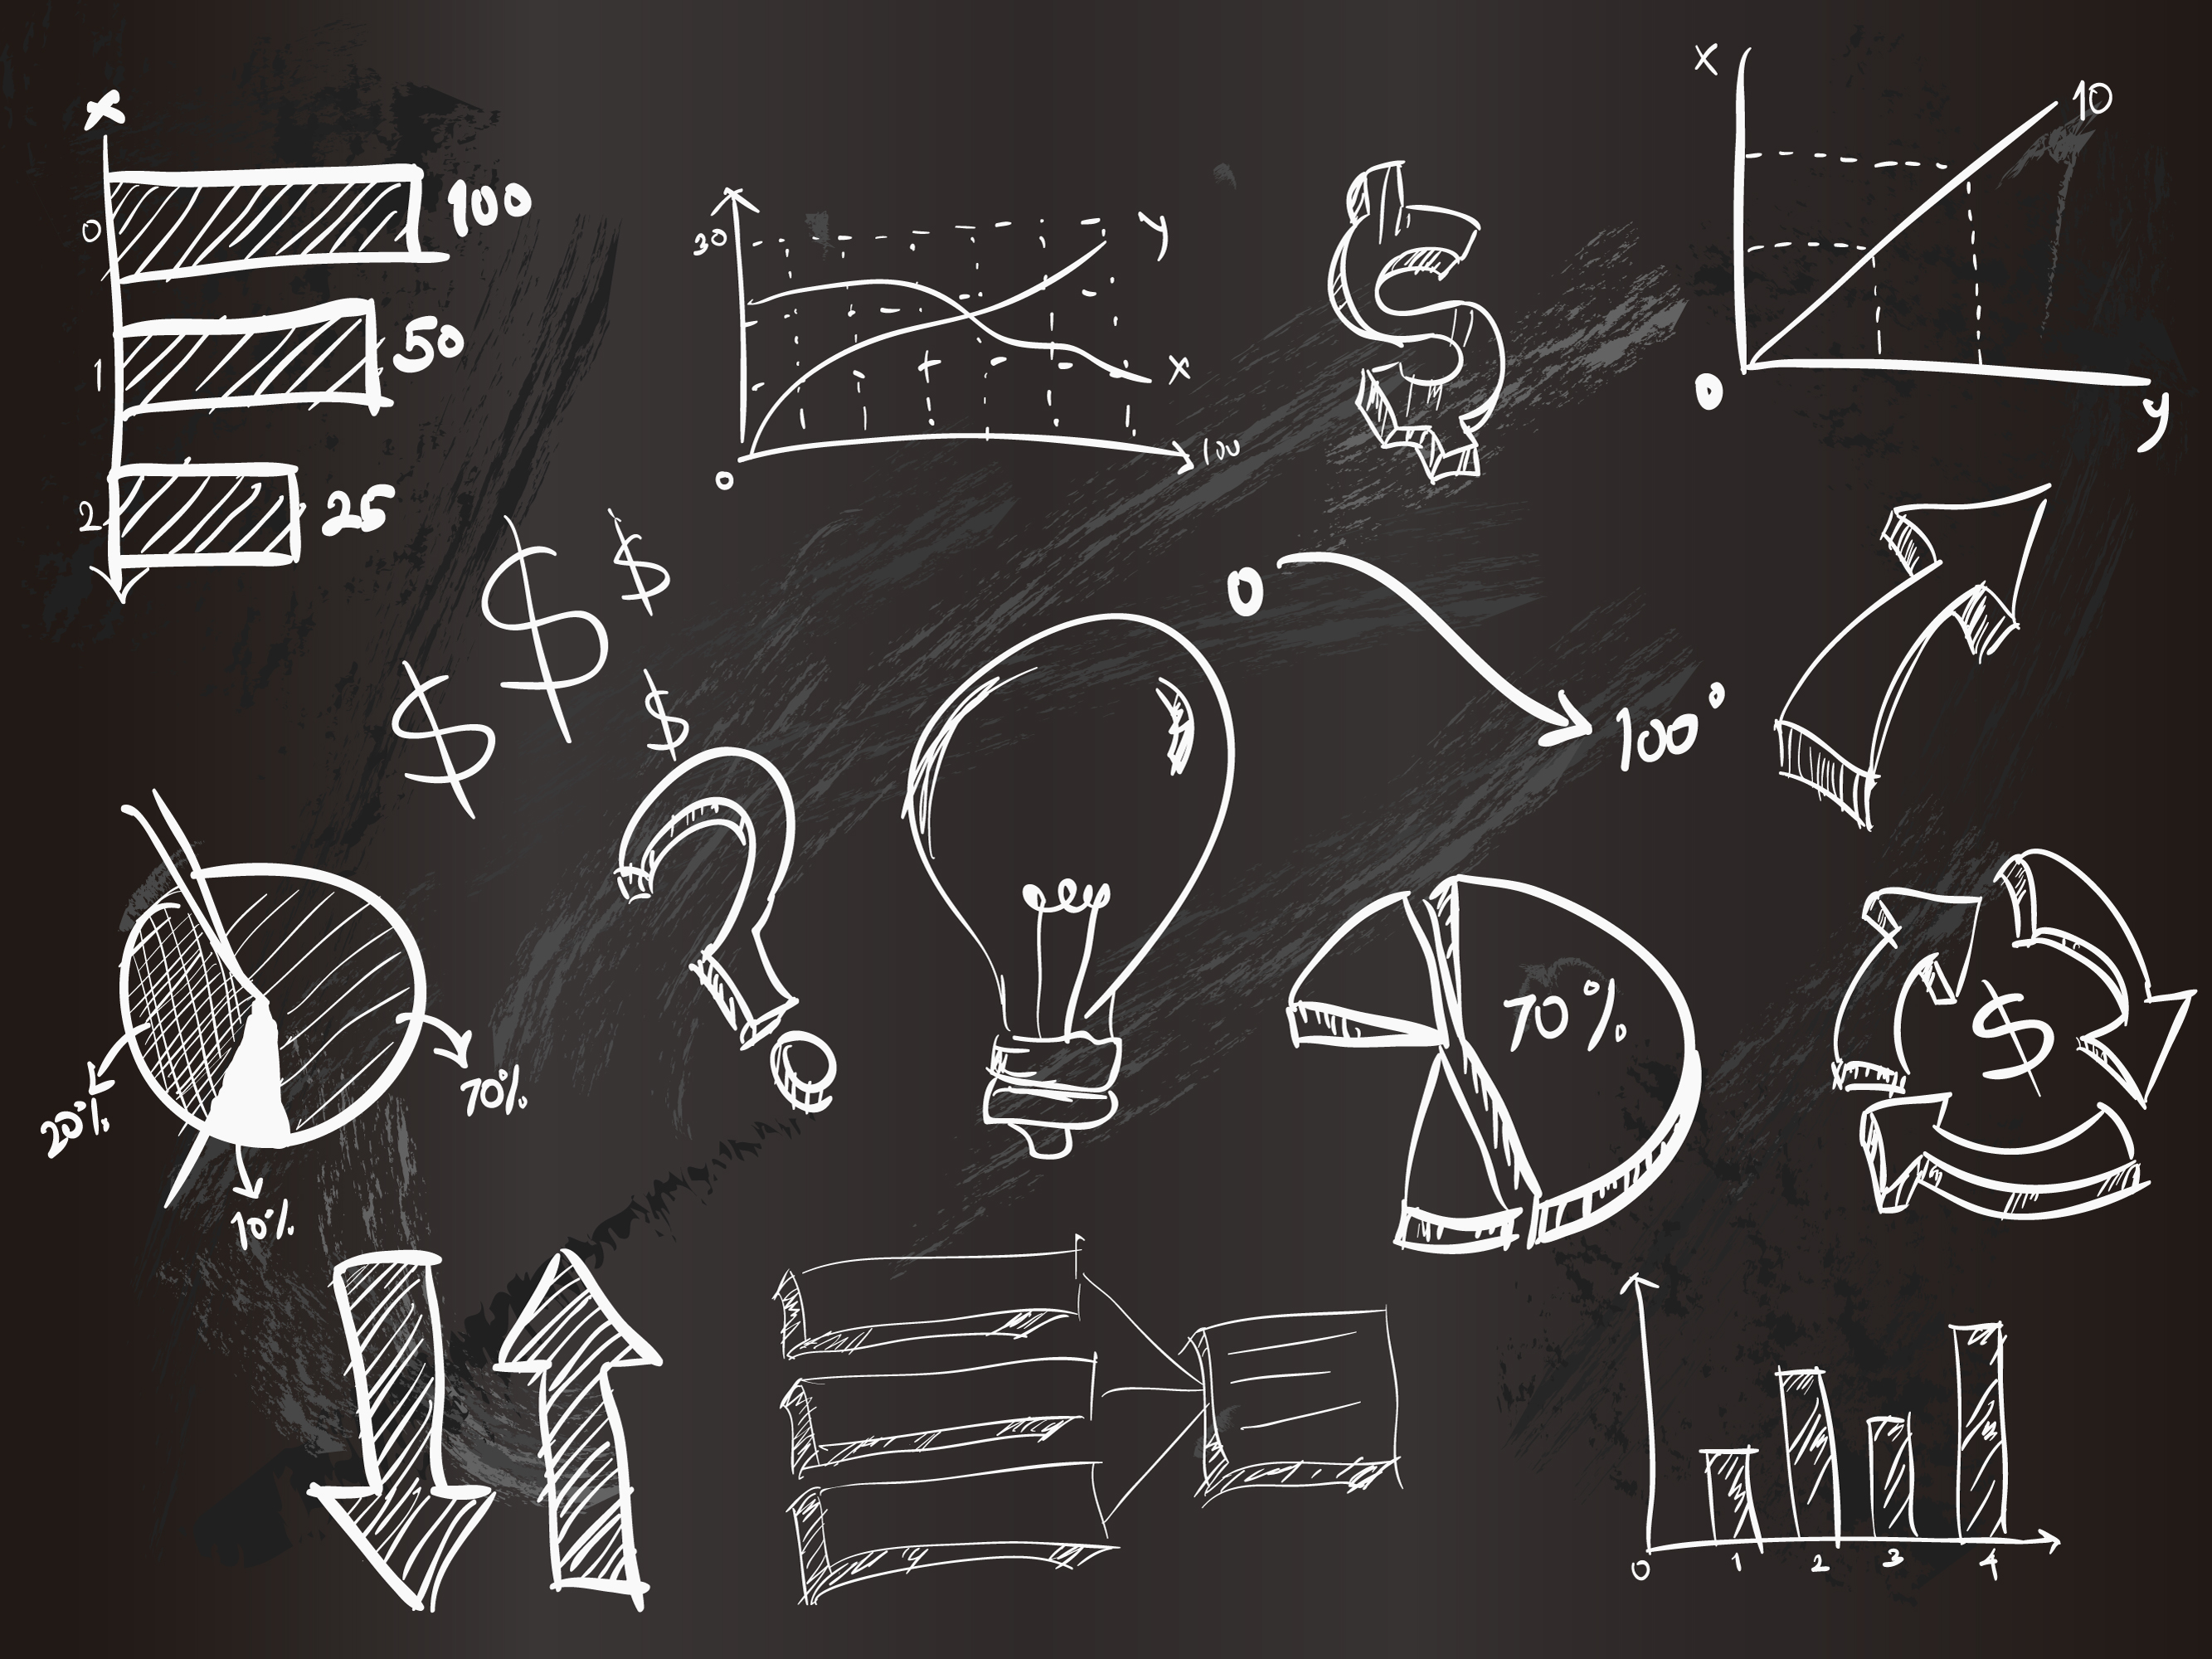 x
0
100
1
50
2
25
30
y
x
0
100
$
x
10
0
y
$
$
$
$
0
100°
?
20%
70%
10%
70%
$
0
1
2
3
4